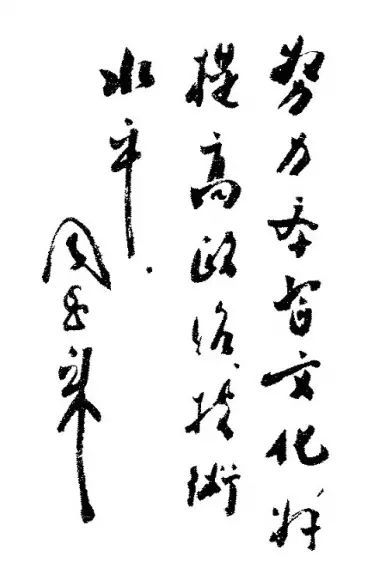 努力学習文化
提高政治技術
水平.
周恩来